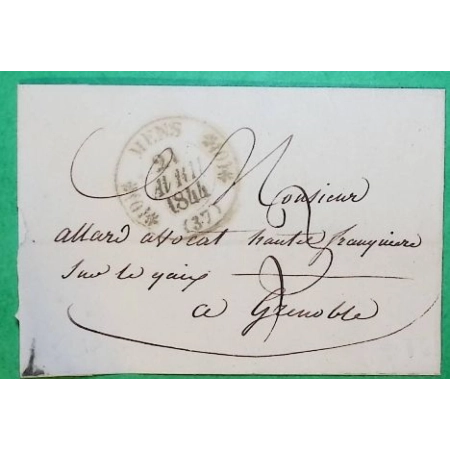 MENS
AVRIL
1844
(37)
Monsieur
allard avocat haute franquiere
Sur le quai
2
a Grenoble